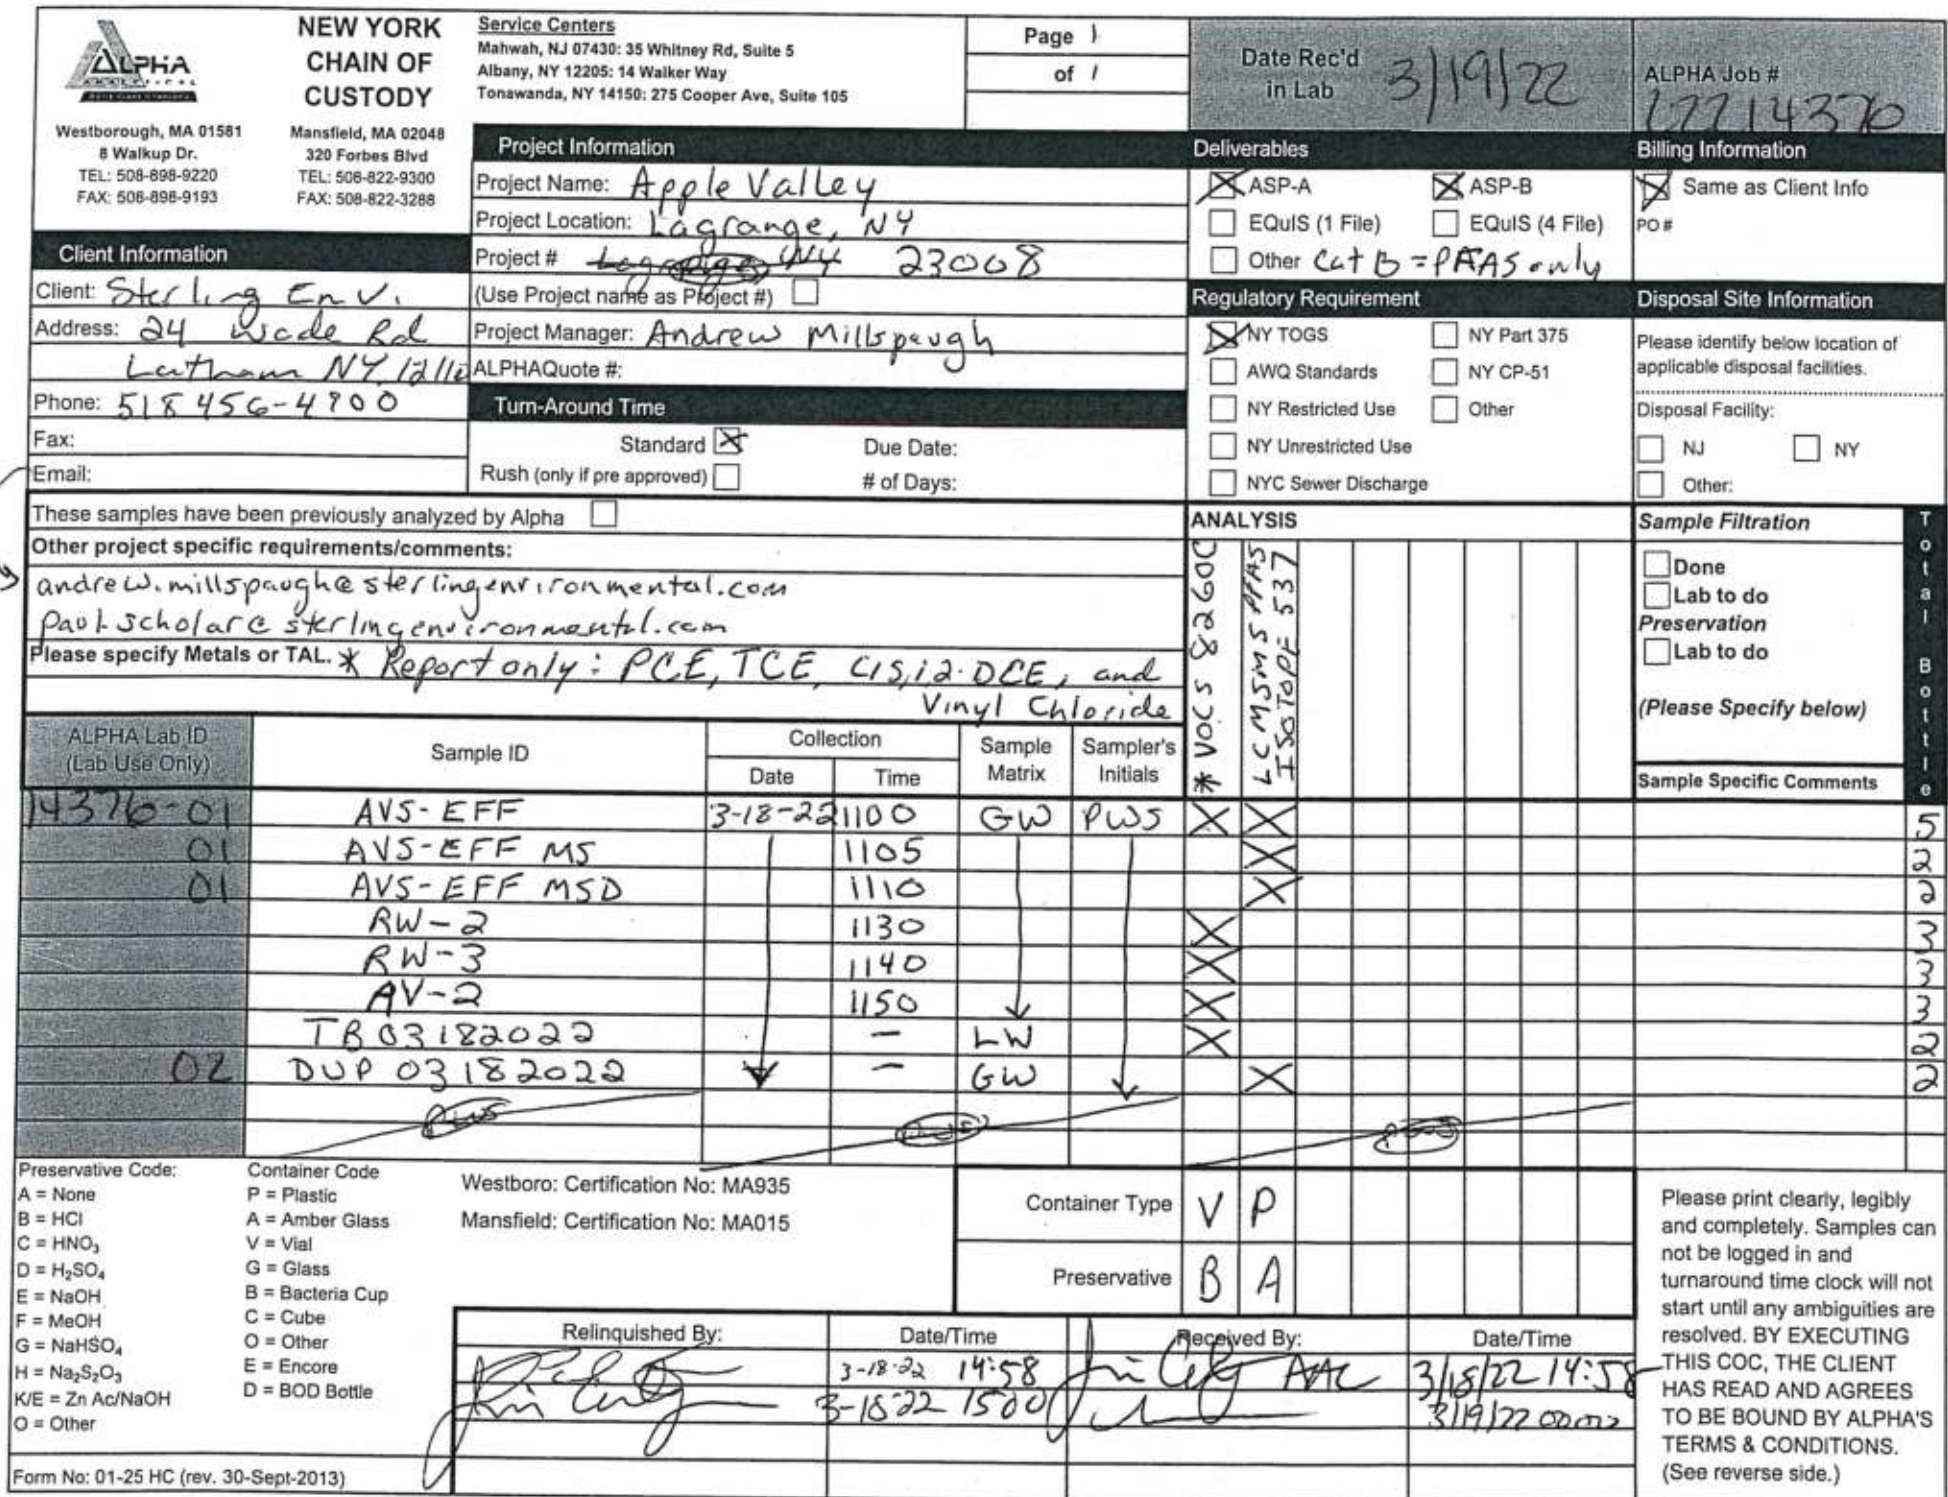 ALPHA
ANALYTICAL
NEW YORK
CHAIN OF
CUSTODY
Westborough, MA 01581
8 Walkup Dr.
TEL: 508-898-9220
FAX: 508-898-9193
Mansfield, MA 02048
320 Forbes Blvd
TEL: 508-822-9300
FAX: 508-822-3288
Service Centers
Mahwah, NJ 07430: 35 Whitney Rd, Suite 5
Albany, NY 12205: 14 Walker Way
Tonawanda, NY 14150: 275 Cooper Ave, Suite 105
Page 1
of 1
Date Rec'd
in Lab 3/19/22
ALPHA Job #
L2214376
Client Information
Client: Sterling Env.
Address: 24 Wade Rd
Latham NY 12110
Phone: 518 456-4900
Fax:
Email:
Project Information
Project Name: Apple Valley
Project Location: Lagrange, NY
Project # 23008
(Use Project name as Project #)
Project Manager: Andrew Millspaugh
ALPHAQuote #:
Turn-Around Time
Standard X Due Date:
Rush (only if pre approved) # of Days:
Deliverables
X ASP-A X ASP-B
EQuIS (1 File) EQuIS (4 File)
Other Cat B = PFAS only
Regulatory Requirement
X NY TOGS NY Part 375
AWQ Standards NY CP-51
NY Restricted Use Other
NY Unrestricted Use
NYC Sewer Discharge
Billing Information
X Same as Client Info
PO #
Disposal Site Information
Please identify below location of
applicable disposal facilities.
Disposal Facility:
NJ NY
Other:
These samples have been previously analyzed by Alpha
Other project specific requirements/comments:
andrew.millspaugh@sterlingenvironmental.com
paul.scholar@sterlingenvironmental.com
Please specify Metals or TAL. * Report only: PCE, TCE, Cis,1,2-DCE, and
Vinyl Chloride
ANALYSIS
* VOCS 8260C
LCMSMS PFAS
ISOTOPE 537
Sample Filtration
Done
Lab to do
Preservation
Lab to do
(Please Specify below)
Total Bottle
ALPHA Lab ID
(Lab Use Only)
Sample ID
Collection
Date Time
Sample
Matrix
Sampler's
Initials
Sample Specific Comments
14376-01 AVS-EFF 3-18-22 1100 GW PWS X X 5
01 AVS-EFF MS 1105 X 2
01 AVS-EFF MSD 1110 X 2
RW-2 1130 X 3
RW-3 1140 X 3
AV-2 1150 X 3
TB 03182022 — LW X 2
02 DUP 03182022 — GW X 2
PWS
PWS
PWS
Preservative Code:
A = None
B = HCl
C = HNO₃
D = H₂SO₄
E = NaOH
F = MeOH
G = NaHSO₄
H = Na₂S₂O₃
K/E = Zn Ac/NaOH
O = Other
Container Code
P = Plastic
A = Amber Glass
V = Vial
G = Glass
B = Bacteria Cup
C = Cube
O = Other
E = Encore
D = BOD Bottle
Westboro: Certification No: MA935
Mansfield: Certification No: MA015
Container Type V P
Preservative B A
Relinquished By: Date/Time Received By: Date/Time
3-18-22 14:58 AAC 3/18/22 14:58
3-18-22 1500 3/19/22
Please print clearly, legibly
and completely. Samples can
not be logged in and
turnaround time clock will not
start until any ambiguities are
resolved. BY EXECUTING
THIS COC, THE CLIENT
HAS READ AND AGREES
TO BE BOUND BY ALPHA'S
TERMS & CONDITIONS.
(See reverse side.)
Form No: 01-25 HC (rev. 30-Sept-2013)